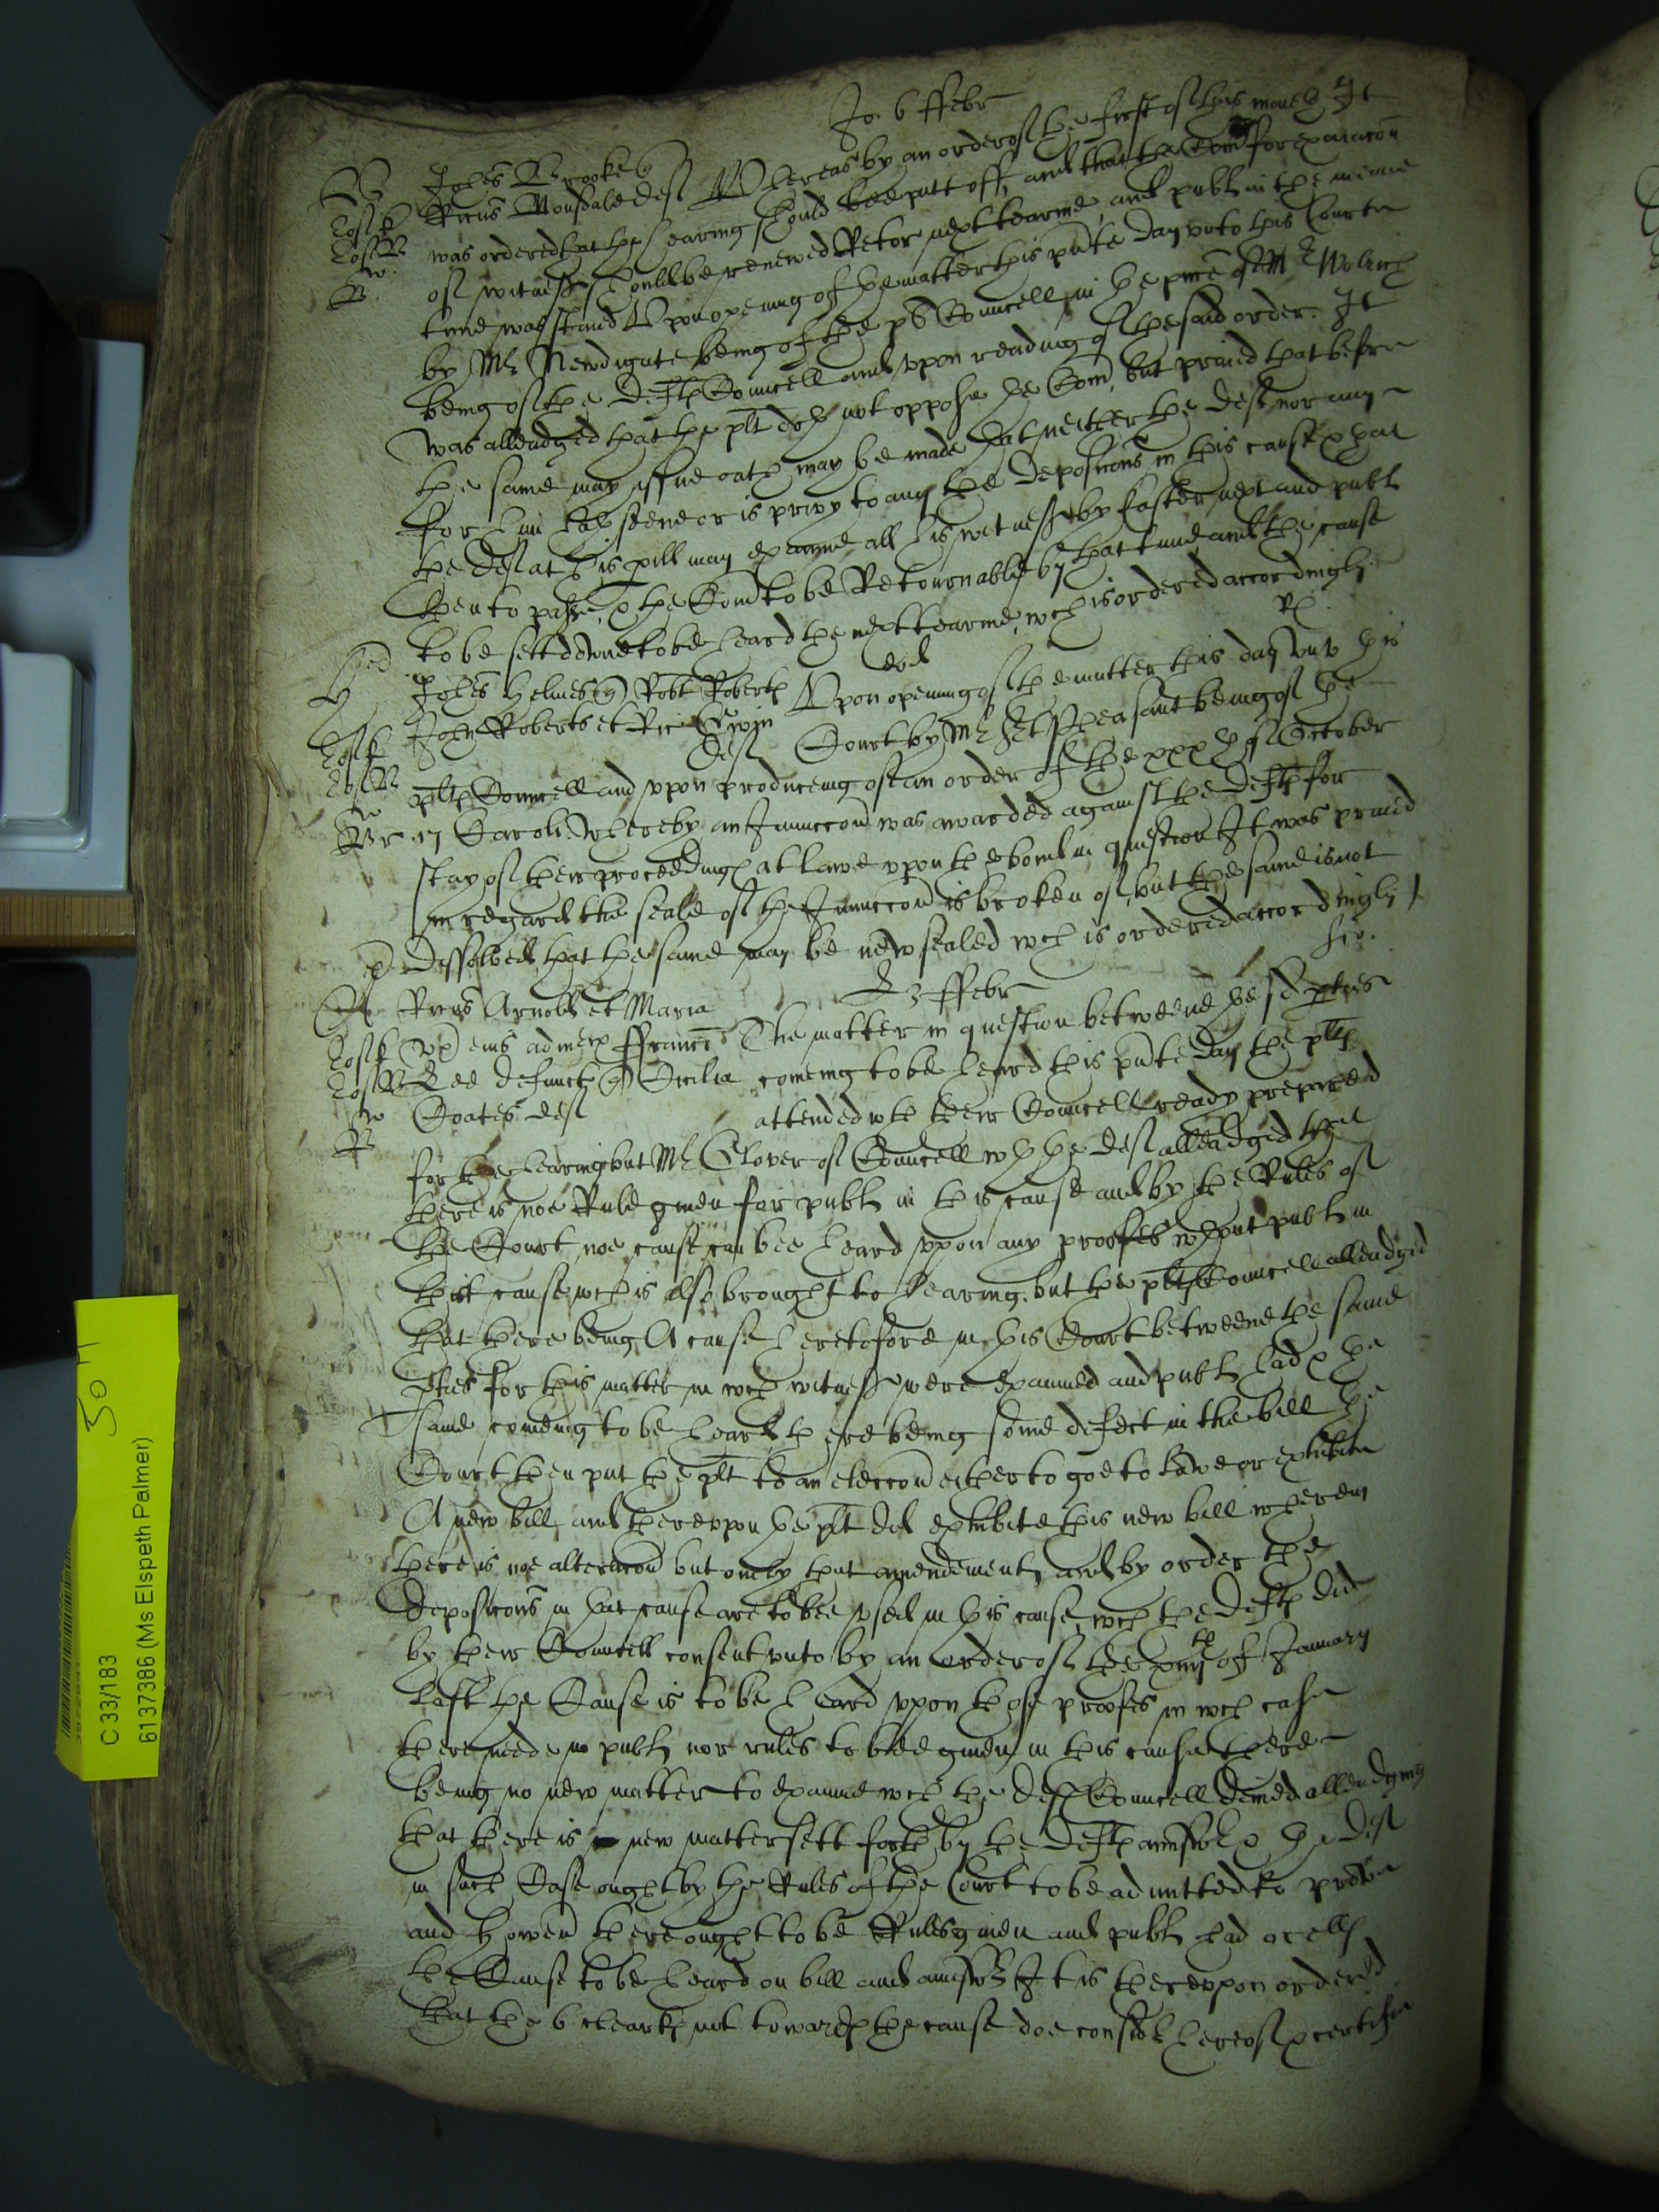 Jo. 6 ffebr
Johes Brooke
Ricus Mousdale def Whereas by an order of the first of this moneth It
was ordered that the hearing should bee putt off, and that the Com for exaiacon
of witnesses should be renewed Retor next tearme, and publ in the meane
time was staied Upon opening of the matter this pnte day unto this Court
by Mr Newdigate being of the pl Councell in the pnce of Mr
being of the defts Councell and upon reading of the said order. It
was alleadged that the plt doth not oppose the Com, but praied that before
the same may issue oath may be made that neither the deft nor any
for him hath seene or is privy to any the deposicons in this cause & that
the deft at his perill may examine all his witnesses by Easter next and publ
then to passe, & the Com to be Retournable by that time, and the cause
to be sett downe to be heard the next tearme, wch is ordered accordingly
Rl
Johes Helmes Robt Roberts eod
John Roberts et Ric def Upon opening of the matter this day unto this
Court by Mr Pheasant being of the
plts Councell and upon produceing of an order of the xxxth of October
17 Caroli whereby an Iniuncon was awarded against the defts for
stay of their proceedings at lawe upon the bond in question It was praied
in regard the seale of the Iniuncon is broken of, but the same is not
dissolved, that the same may be new sealed wch is ordered accordingly
Jo 3 ffebr
Ricus Arnold et Maria
ux eius
Lee defunct Cicilia
Coates def
The matter in question betweene the sd pties
comeing to be heard this pnte day the plts
attended wth their Councell ready prepared
for the hearing but Mr Glover of Councell wth the def alleadged that
there is noe Rule given for publ in this cause and by the Rules of
the Court noe cause can bee heard upon any proofes wthout publ in
that cause wch is also brought to hearing, but the plts Councell alleadged
that there being A cause heretofore in this Court betweene the same
pties for this matter in wch witnesses were examined and publ had & the
same comeing to be heard there being some defect in the bill the
Court then put the plt to an eleccon either to goe to lawe or exhibite
A new bill, and thereupon the plt did exhibite this new bill wherein
there is noe alteracon but onely that amendement, and by order the
deposicons in that cause are to bee used in this cause, wch the defts did
by their Councell consent unto by an order of the xiiijth of January
last the Cause is to be heard upon those proofes in wch case
there needs no publ nor rules to bee given in this cause there
being no new matter to examine wch the defts Councell denied alleadging
that there is new matter sett forth by the defts answere & the deft
in such Case ought by the Rules of the Court to be admitted to prove
and howevr there ought to be Rules given and publ had or ells
the Cause to be heard on bill and answere It is thereupon ordered
that the 6 clearks not towards the cause doe consider hereof & certifie
C 33/183
6137386 (Ms Elspeth Palmer)